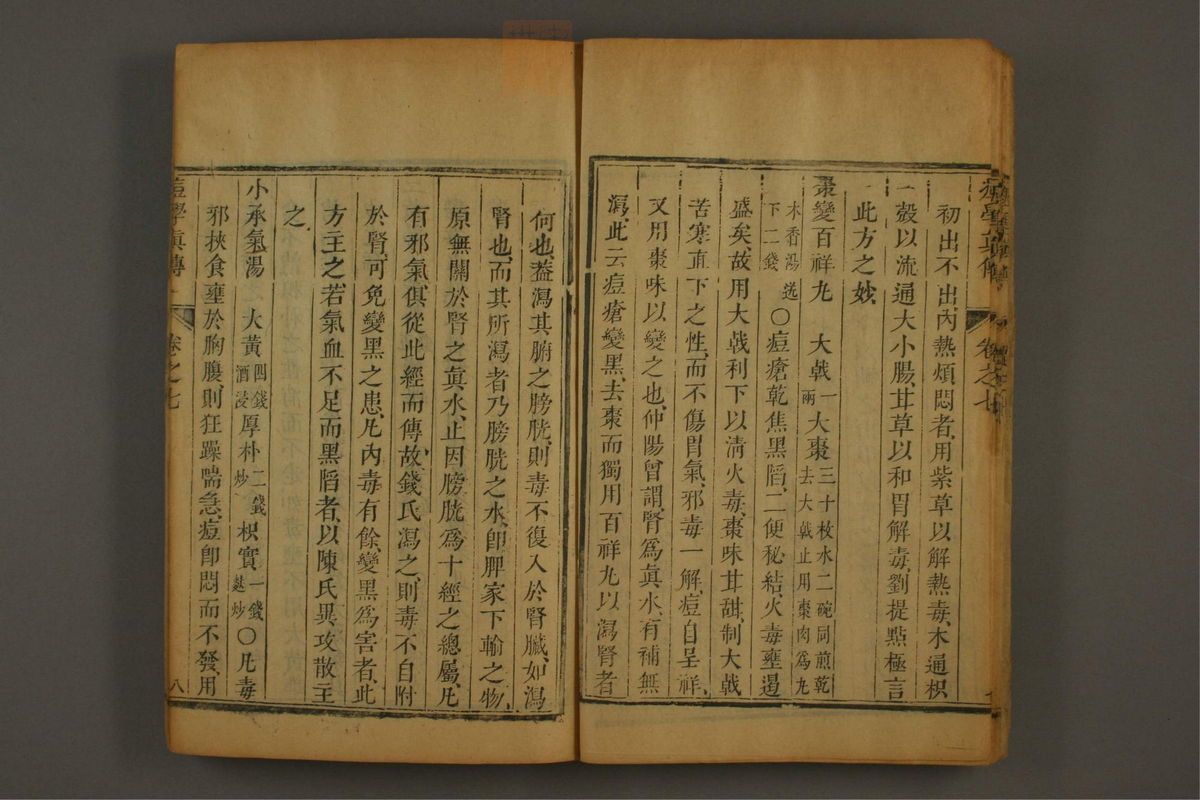 痘學眞傳 卷之七
初出不出、內熱煩悶者、用紫草以解熱毒、木通枳
殼以流通大小腸、甘草以和胃解毒、劉提點極言
此方之妙
棗變百祥丸 大戟一兩 大棗三十枚水二碗同煎乾去大戟止用棗肉爲丸
木香湯送下二錢 〇痘瘡乾焦黑陷、二便秘結、火毒壅遏
盛矣、故用大戟利下以淸火毒、棗味甘甜、制大戟
苦寒直下之性、而不傷胃氣、邪毒一解、痘自呈祥、
又用棗味以變之也、仲陽曾謂、腎爲眞水、有補無
瀉、此云痘瘡變黑、去棗而獨用百祥丸以瀉腎者
何也、蓋瀉其腑之膀胱、則毒不復入於腎臟、如瀉
腎也、而其所瀉者乃膀胱之水、卽脾家下輸之物、
原無關於腎之眞水、止因膀胱爲十經之總屬、凡
有邪氣俱從此經而傳、故錢氏瀉之、則毒不自附
於腎、可免變黑之患、凡內毒有餘、變黑爲害者、此
方主之若氣血不足而黑陷者、以陳氏異攻散主
之
小承氣湯 大黃四錢酒浸 厚朴二錢炒 枳實一錢麩炒 〇凡毒
邪挾食壅於胸腹、則狂躁喘急、痘卽悶而不發、用
痘學眞傳 卷之七 八